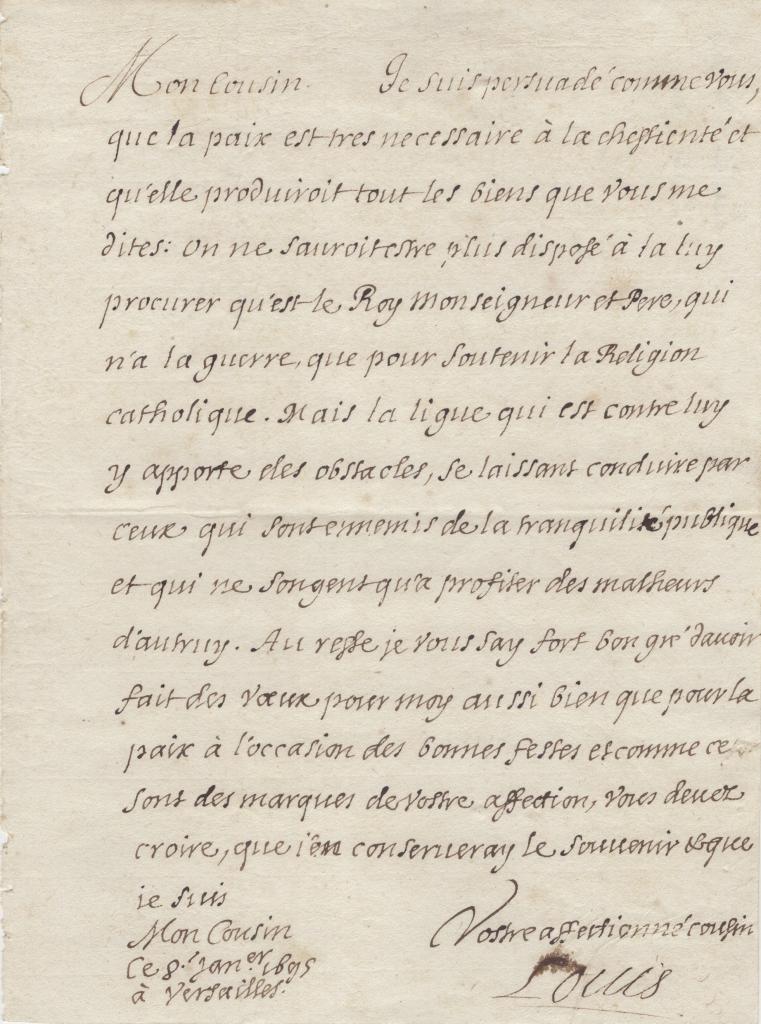 Mon Cousin. Je suis persuadé comme vous,
que la paix est tres necessaire à la chestienté et
qu'elle produiroit tout les biens que vous me
dites: On ne sauroit estre plus disposé à la luy
procurer qu'est le Roy Monseigneur et Pere, qui
n'a la guerre, que pour soutenir la Religion
catholique. Mais la ligue qui est contre luy
y apporte des obstacles, se laissant conduire par
ceux qui sont ennemis de la tranquilité publique
et qui ne songent qu'a profiter des malheurs
d'autruy. Au reste je vous say fort bon gré davoir
fait des vœux pour moy aussi bien que pour la
paix à l'occasion des bonnes festes et comme ce
sont des marques de vostre affection, vous devez
croire, que i'en conserveray le souvenir & que
ie suis
Mon Cousin
Vostre affectionné cousin
Ce 8.e jan.er 1695
à Versailles.
Louis